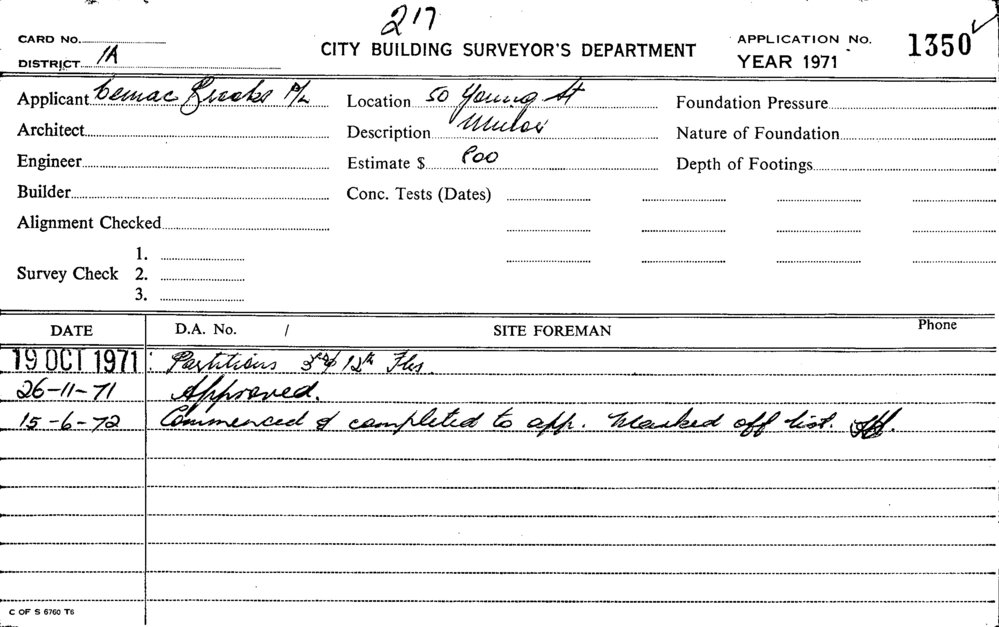 217
CARD NO.
DISTRICT 1A
CITY BUILDING SURVEYOR'S DEPARTMENT
APPLICATION No. 1350
YEAR 1971
Applicant Cemac Brooks P/L
Location 50 Young St
Foundation Pressure
Architect
Description Minor
Nature of Foundation
Engineer
Estimate $ 800
Depth of Footings
Builder
Conc. Tests (Dates)
Alignment Checked
Survey Check
1.
2.
3.
DATE
D.A. No. /
SITE FOREMAN
Phone
19 OCT 1971 Partitions 3rd & 12th Flrs.
26-11-71 Approved.
15-6-72 Commenced & completed to app. Marked off list.
C OF S 6760 T6